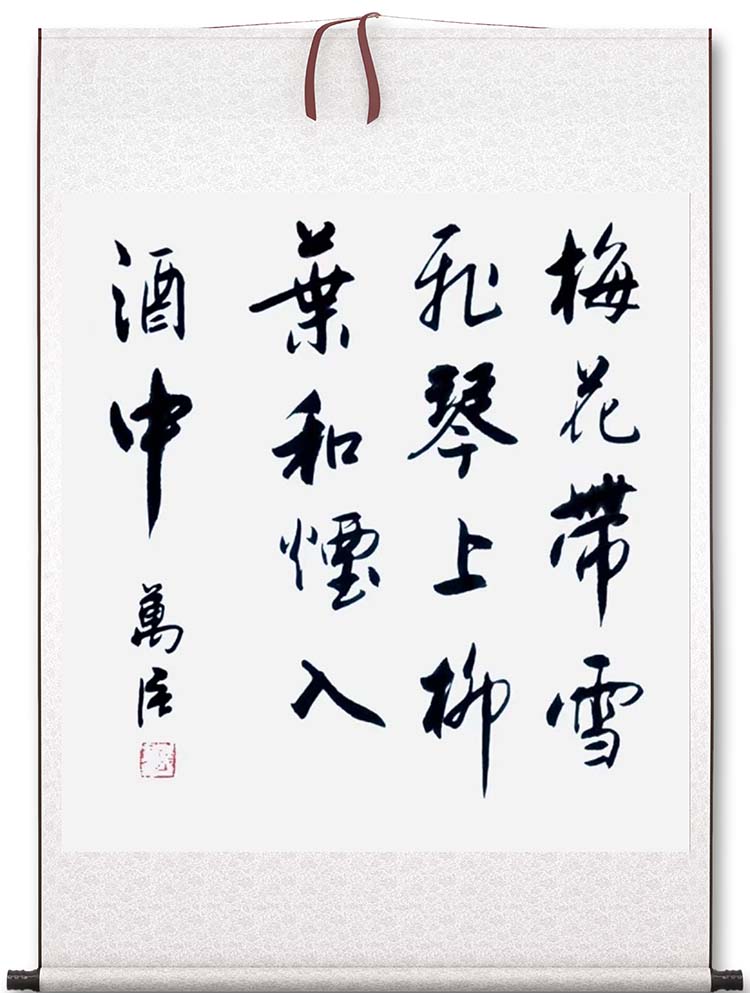 梅花帶雪
飛琴上柳
葉和煙入
酒中
萬